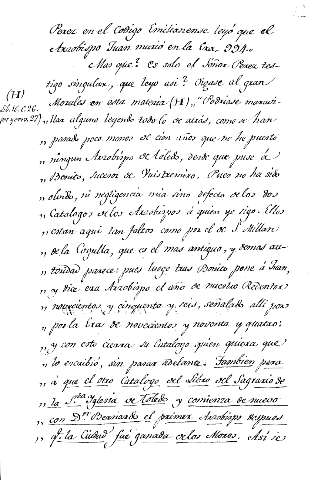 Perez en el Codigo Emilianense leyó que el
Arzobispo Juan murió en la Era 994.
Mas que? Es solo el Señor Perez tes-
tigo singular, que leyo asi? Oigase al gran
Morales en esta materia (H) „ Podriase maravi-
(H)
„ llar alguno leyendo todo lo de atrás, como se han
„ pasado poco menos de cien años que no he puesto
„ ningun Arzobispo de Toledo, desde que puse á
„ Bonito, sucesor de Wistremiro. Pues no ha sido
„ olvido, ni negligencia mia sino defecto de los dos
„ Catalogos de los Arzobispos á quien yo sigo. Ellos
„ estan aqui tan faltos como por el de S. Millan
„ de la Cogulla, que es el mas antiguo, y de mas au-
„ toridad parece: pues luego tras Bonito pone á Juan,
„ y dice era Arzobispo el año de nuestro Redentor
„ novecientos y cinquenta y seis, señalado alli por
„ por la Era de novecientos y noventa y quatro:
„ y con esto cierra su Catalogo quien quiera que
„ lo escribió, sin pasar adelante. Tambien para
„ á que el otro Catalogo del Libro del Sagrario de
„ la Sta. Iglesia de Toledo y comienza de nuevo
„ con Dn. Bernardo el primer Arzobispo despues
„ q. la Ciudad fué ganada de los Moros. Asi se